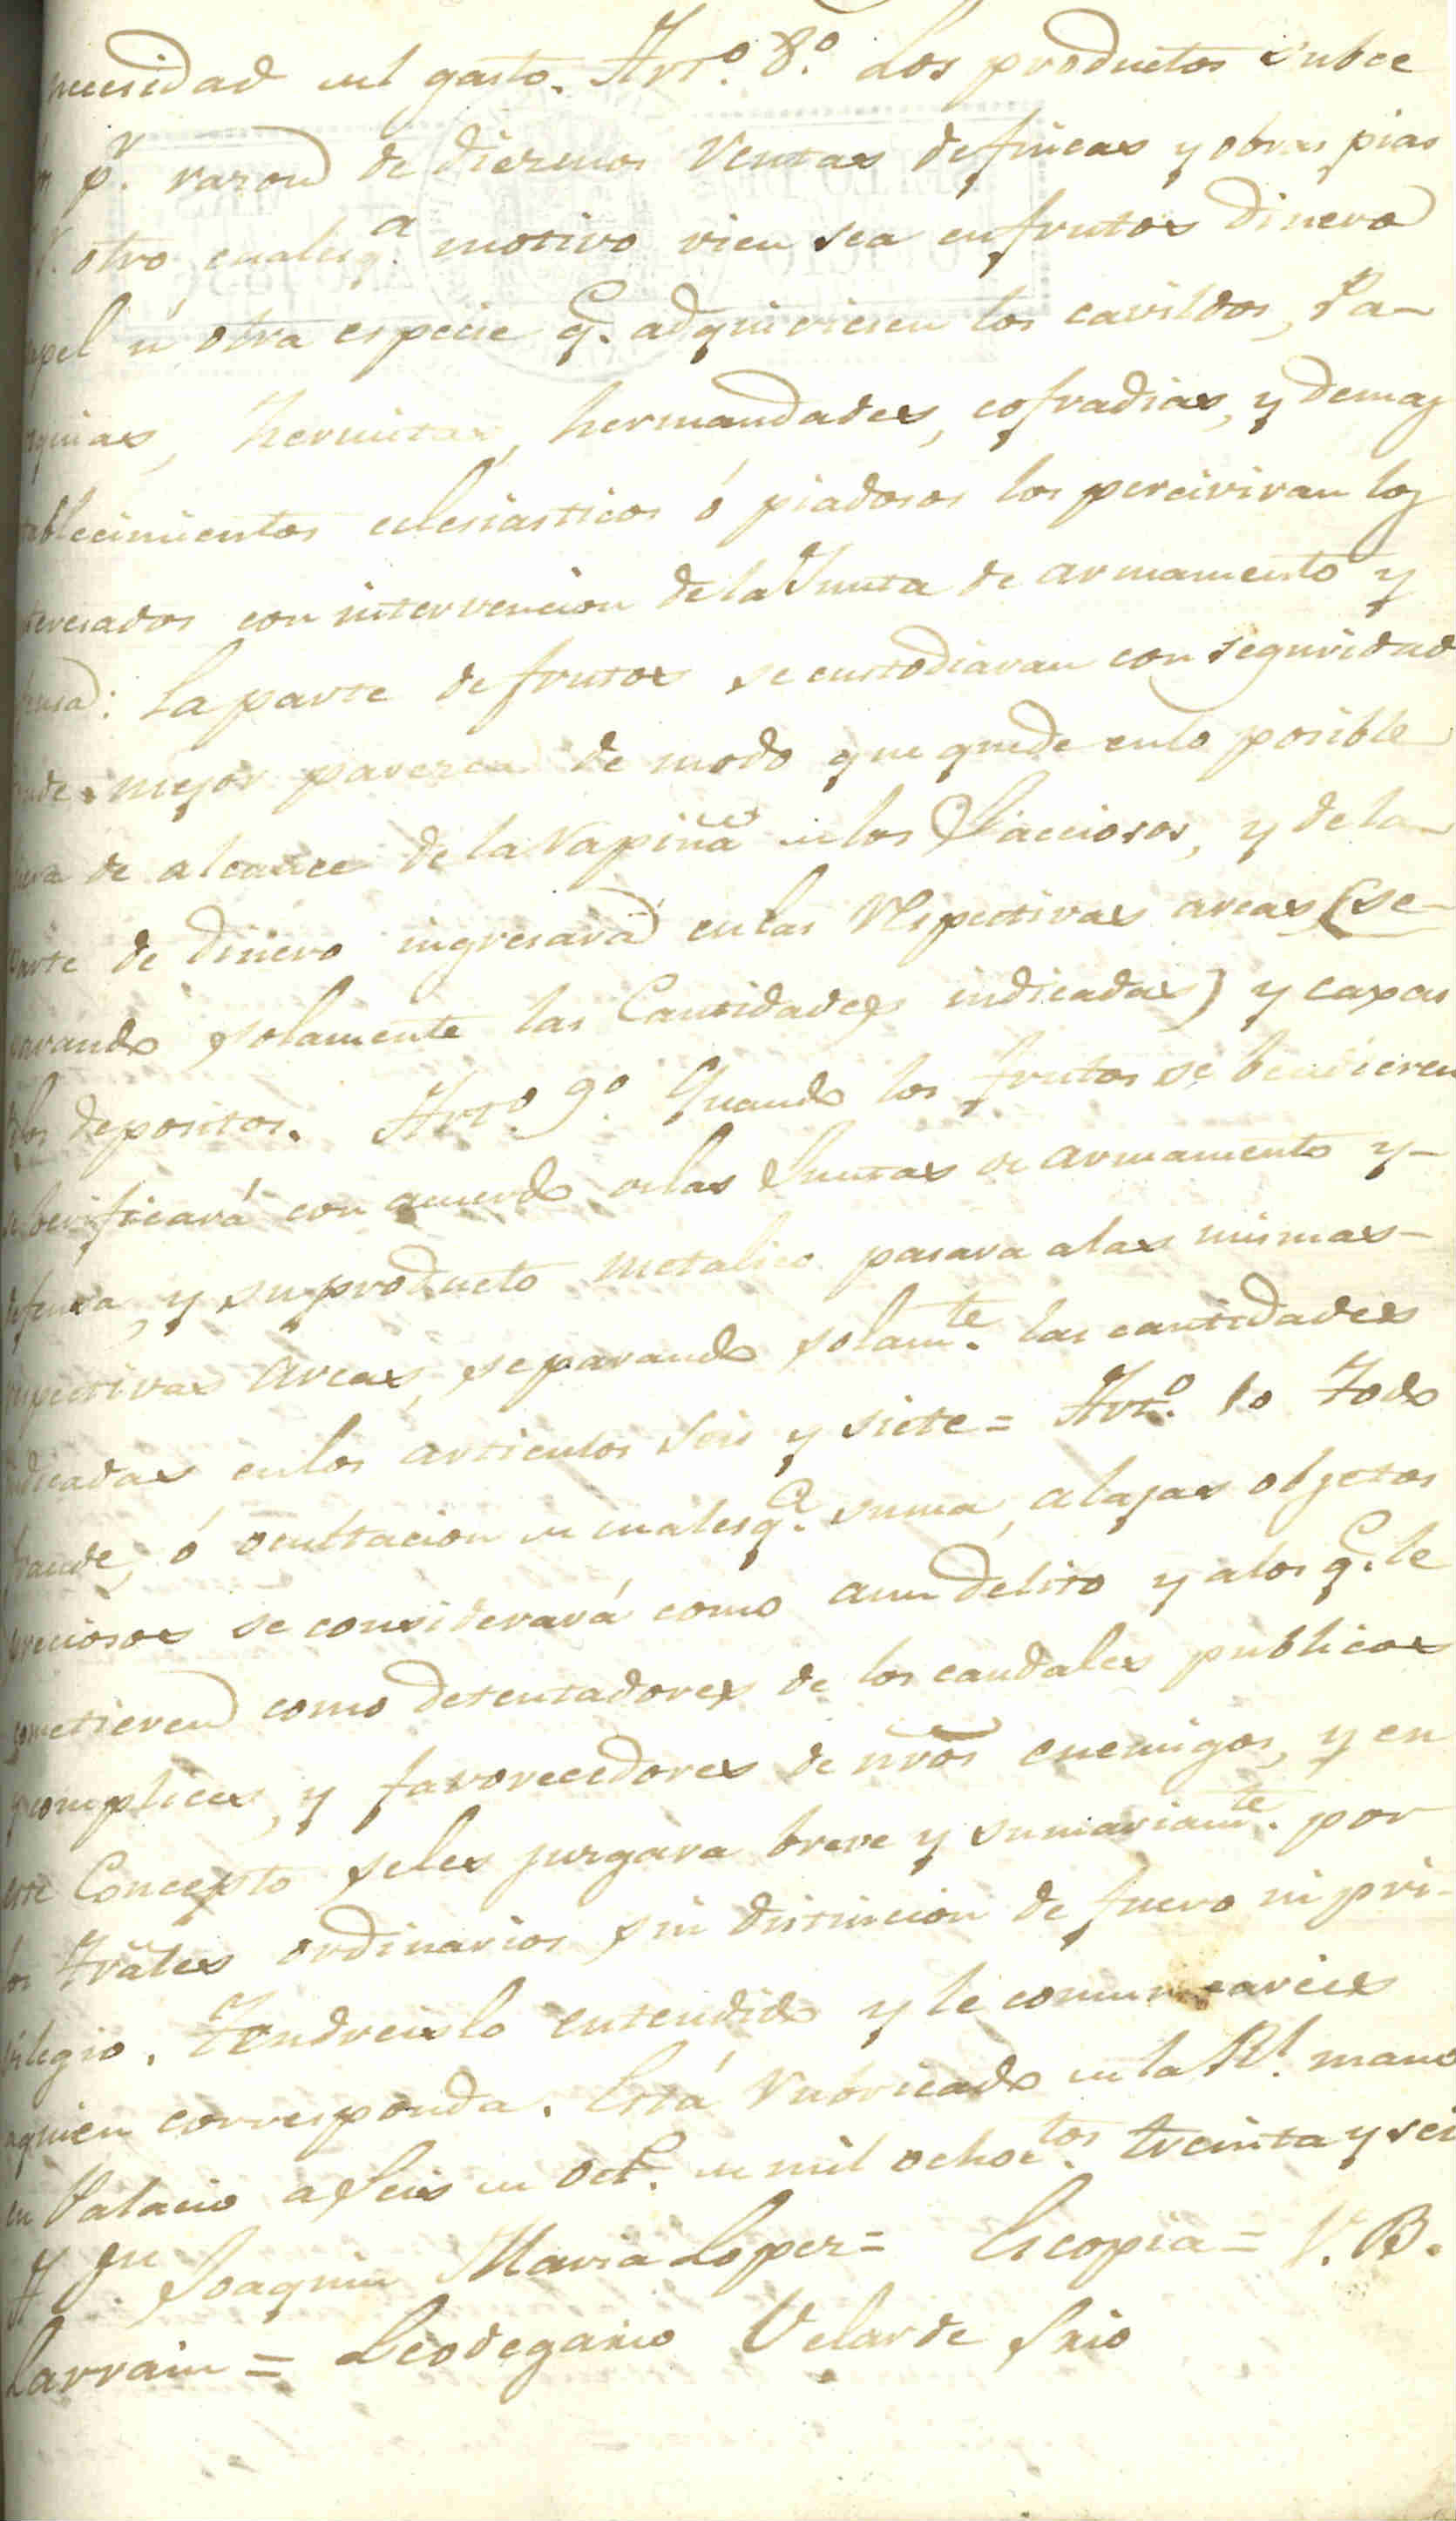 necesidad del gasto. Arto. 8o. Los productos subce
pr. razon de diezmos ventas de fincas y obras pias
otro qualesqa. motivo vien sea en frutos dinero
papel ú otra especie q. adquiriesen los cavildos, Pa-
rroquias, hermitas, hermandades, cofradias, y demas
tablecimientos eclesiasticos ó piadosos los perciviran los
teresados con intervencion de la Junta de armamento y
fensa: La parte de frutos se custodiaran con seguridad
donde mejor parezca de modo que quede en lo posible
fuera de alcance de la rapiña de los Facciosos, y de la
parte de dinero ingresará en las respectivas arcas (se-
parando solamente las Cantidades indicadas) y caxas
de los depositos. Arto. 9o Quando los frutos se bendieren
se berificará con acuerdo de las Juntas de armamento y-
defensa, y su producto metalico pasara a las mismas-
respectivas arcas, separando solamte. las cantidades
indicadas en los articulos seis y siete = Arto. 10 Todo
fraude, ó ocultacion de qualesqa. suma, alajas objetos
preciosos se considerará como aun delito y a los q. le
cometieren como detentadores de los caudales publicos
complices, y favorecedores de nros enemigos, y en
este Concepto se les juzgara breve y sumariamte. por
los Trales ordinarios sin distincion de fuero ni pri-
vilegio. Tendreislo entendido y le comunicareis
a quien corresponda. Está rubricado de la Rl. mano
en Palacio a seis de Oct. de mil ochoctos. treinta y seis
Joaquin Maria Lopez = Es copia = V. B.
Larrain = Leodegario Velarde Srio